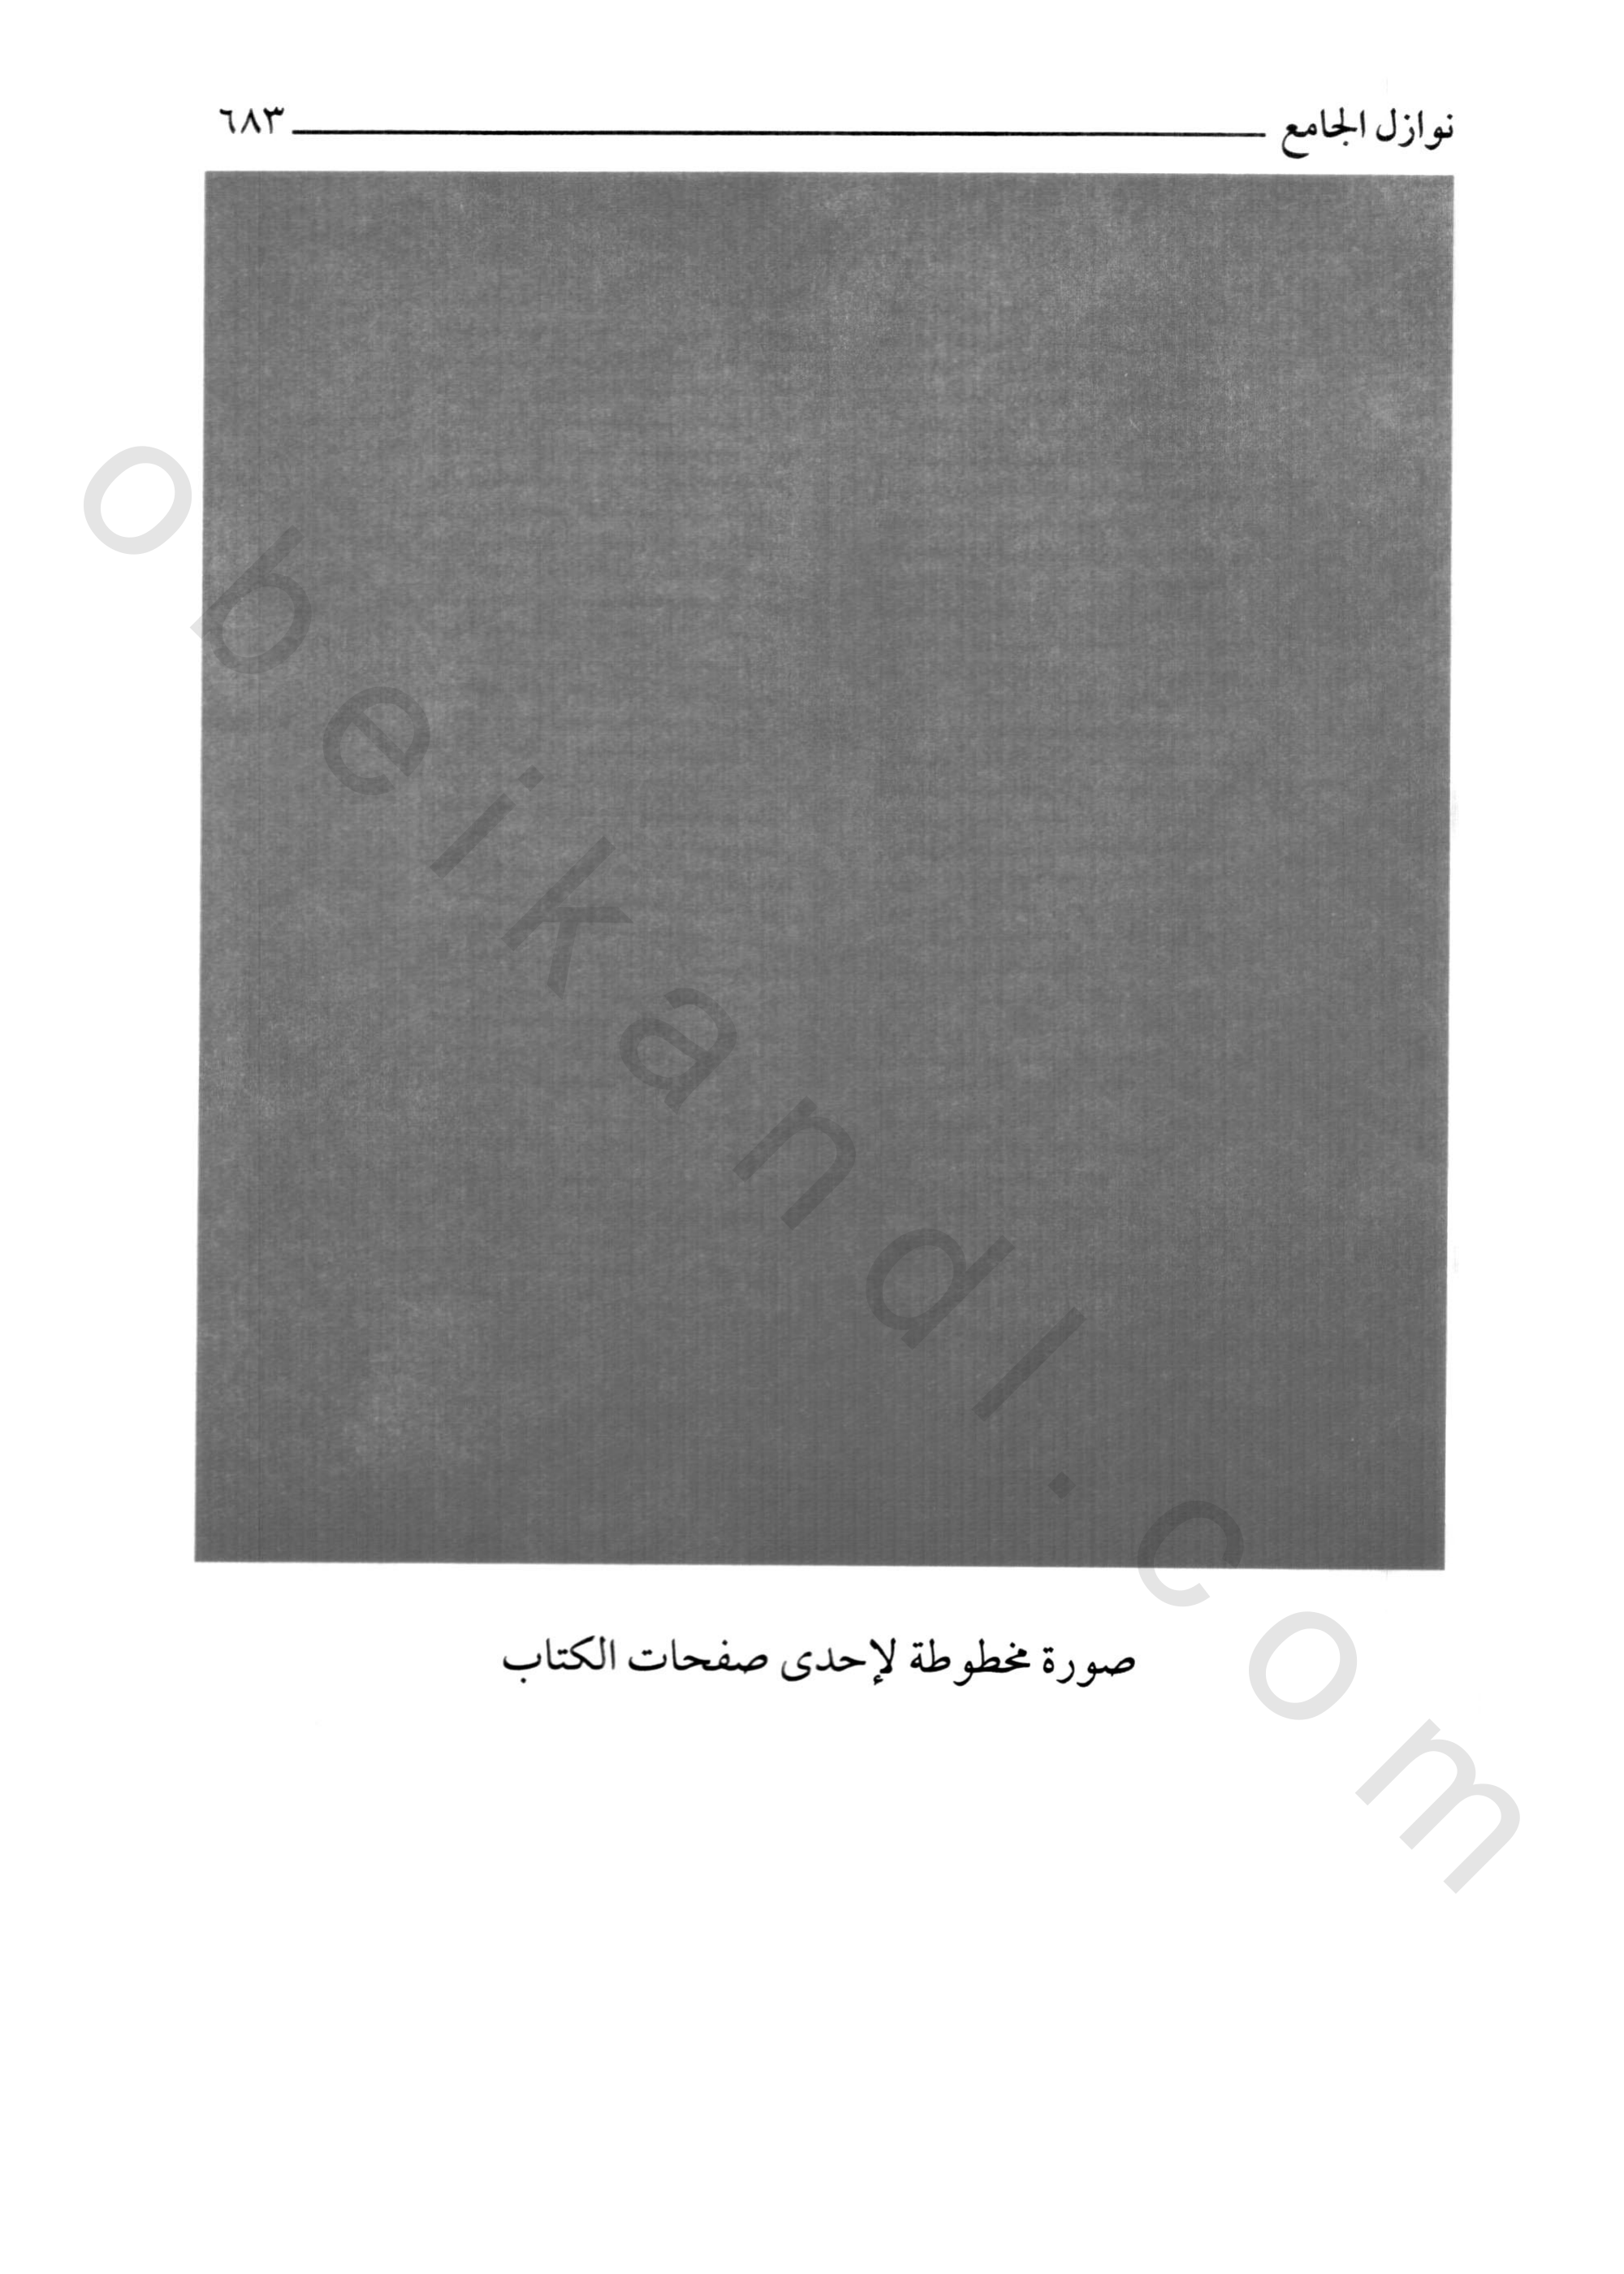 نوازل الجامع ٦٨٣
صورة مخطوطة لإحدى صفحات الكتاب
obeikandl.com